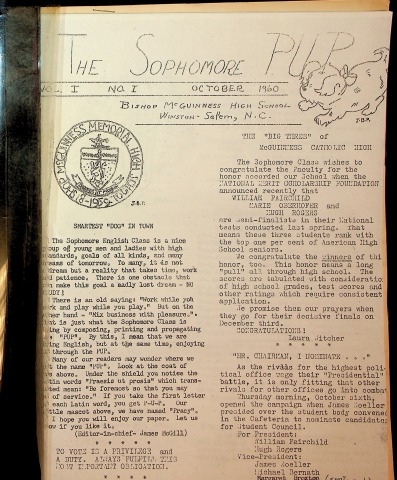 THE SOPHOMORE PUP
VOL. I NO. I OCTOBER 1960
BISHOP McGUINNESS HIGH SCHOOL
WINSTON-SALEM, N.C.
J.B.R.
BISHOP McGUINNESS MEMORIAL HIGH SCHOOL
1959
SMARTEST "DOG" IN TOWN
The Sophomore English Class is a nice
group of young men and ladies with high
standards, goals of all kinds, and many
dreams of tomorrow. To many, it is not
dream but a reality that takes time, work
nd patience. There is one obstacle that
n make this goal a sadly lost dream - NO
DY!
There is an old saying: "Work while you
rk and play while you play." But on the
her hand - "Mix business with pleasure.".
at is just what the Sophomore Class is
ing by composing, printing and propagating
"PUP". By this, I mean that we are
ing English, but at the same time, enjoying
through the PUP.
Many of our readers may wonder where we
t the name "PUP". Look at the coat of
ms above. Under the shield you notice the
tin words "Praesis ut prosis" which trans-
ted means "Be foremost so that you may
of service." If you take the first letter
each Latin word, you get P-U-P. Our
ttle mascot above, we have named "Pracy".
I hope you will enjoy our paper. Let us
ow if you like it.
(Editor-in-chief- James McGill)
* * * *
TO VOTE IS A PRIVILEGE and
A DUTY. ALWAYS FULFILL THIS
MOST IMPORTANT OBLIGATION.
* * * *
THE "BIG THREE" of
McGUINNESS CATHOLIC HIGH
The Sophomore Class wishes to
congratulate the Faculty for the
honor accorded our School when the
NATIONAL MERIT SCHOLARSHIP FOUNDATION
announced recently that
WILLIAM FAIRCHILD
MARIE OBERHOFER and
HUGH ROGERS
are semi-finalists in their National
tests conducted last spring. That
means these three students rank with
the top one per cent of American High
School seniors.
We congratulate the winners of this
honor, too. This honor means a long
"pull" all through high school. The
scores are tabulated with consideration
of high school grades, test scores and
other ratings which require consistent
application.
We promise them our prayers when
they go for their decisive finals on
December third.
CONGRATULATIONS!
Laura Pitcher
* * * *
"MR. CHAIRMAN, I NOMINATE . . ."
As the rivals for the highest poli-
tical office wage their "Presidential"
battle, it is only fitting that other
rivals for other offices go into combat.
Thursday morning, October sixth,
opened the campaign when James Koeller
presided over the student body convened
in the Cafeteria to nominate candidates
for Student Council.
For President:
William Fairchild
Hugh Rogers
Vice-President:
James Koeller
Michael Bernath
Margaret Broxton